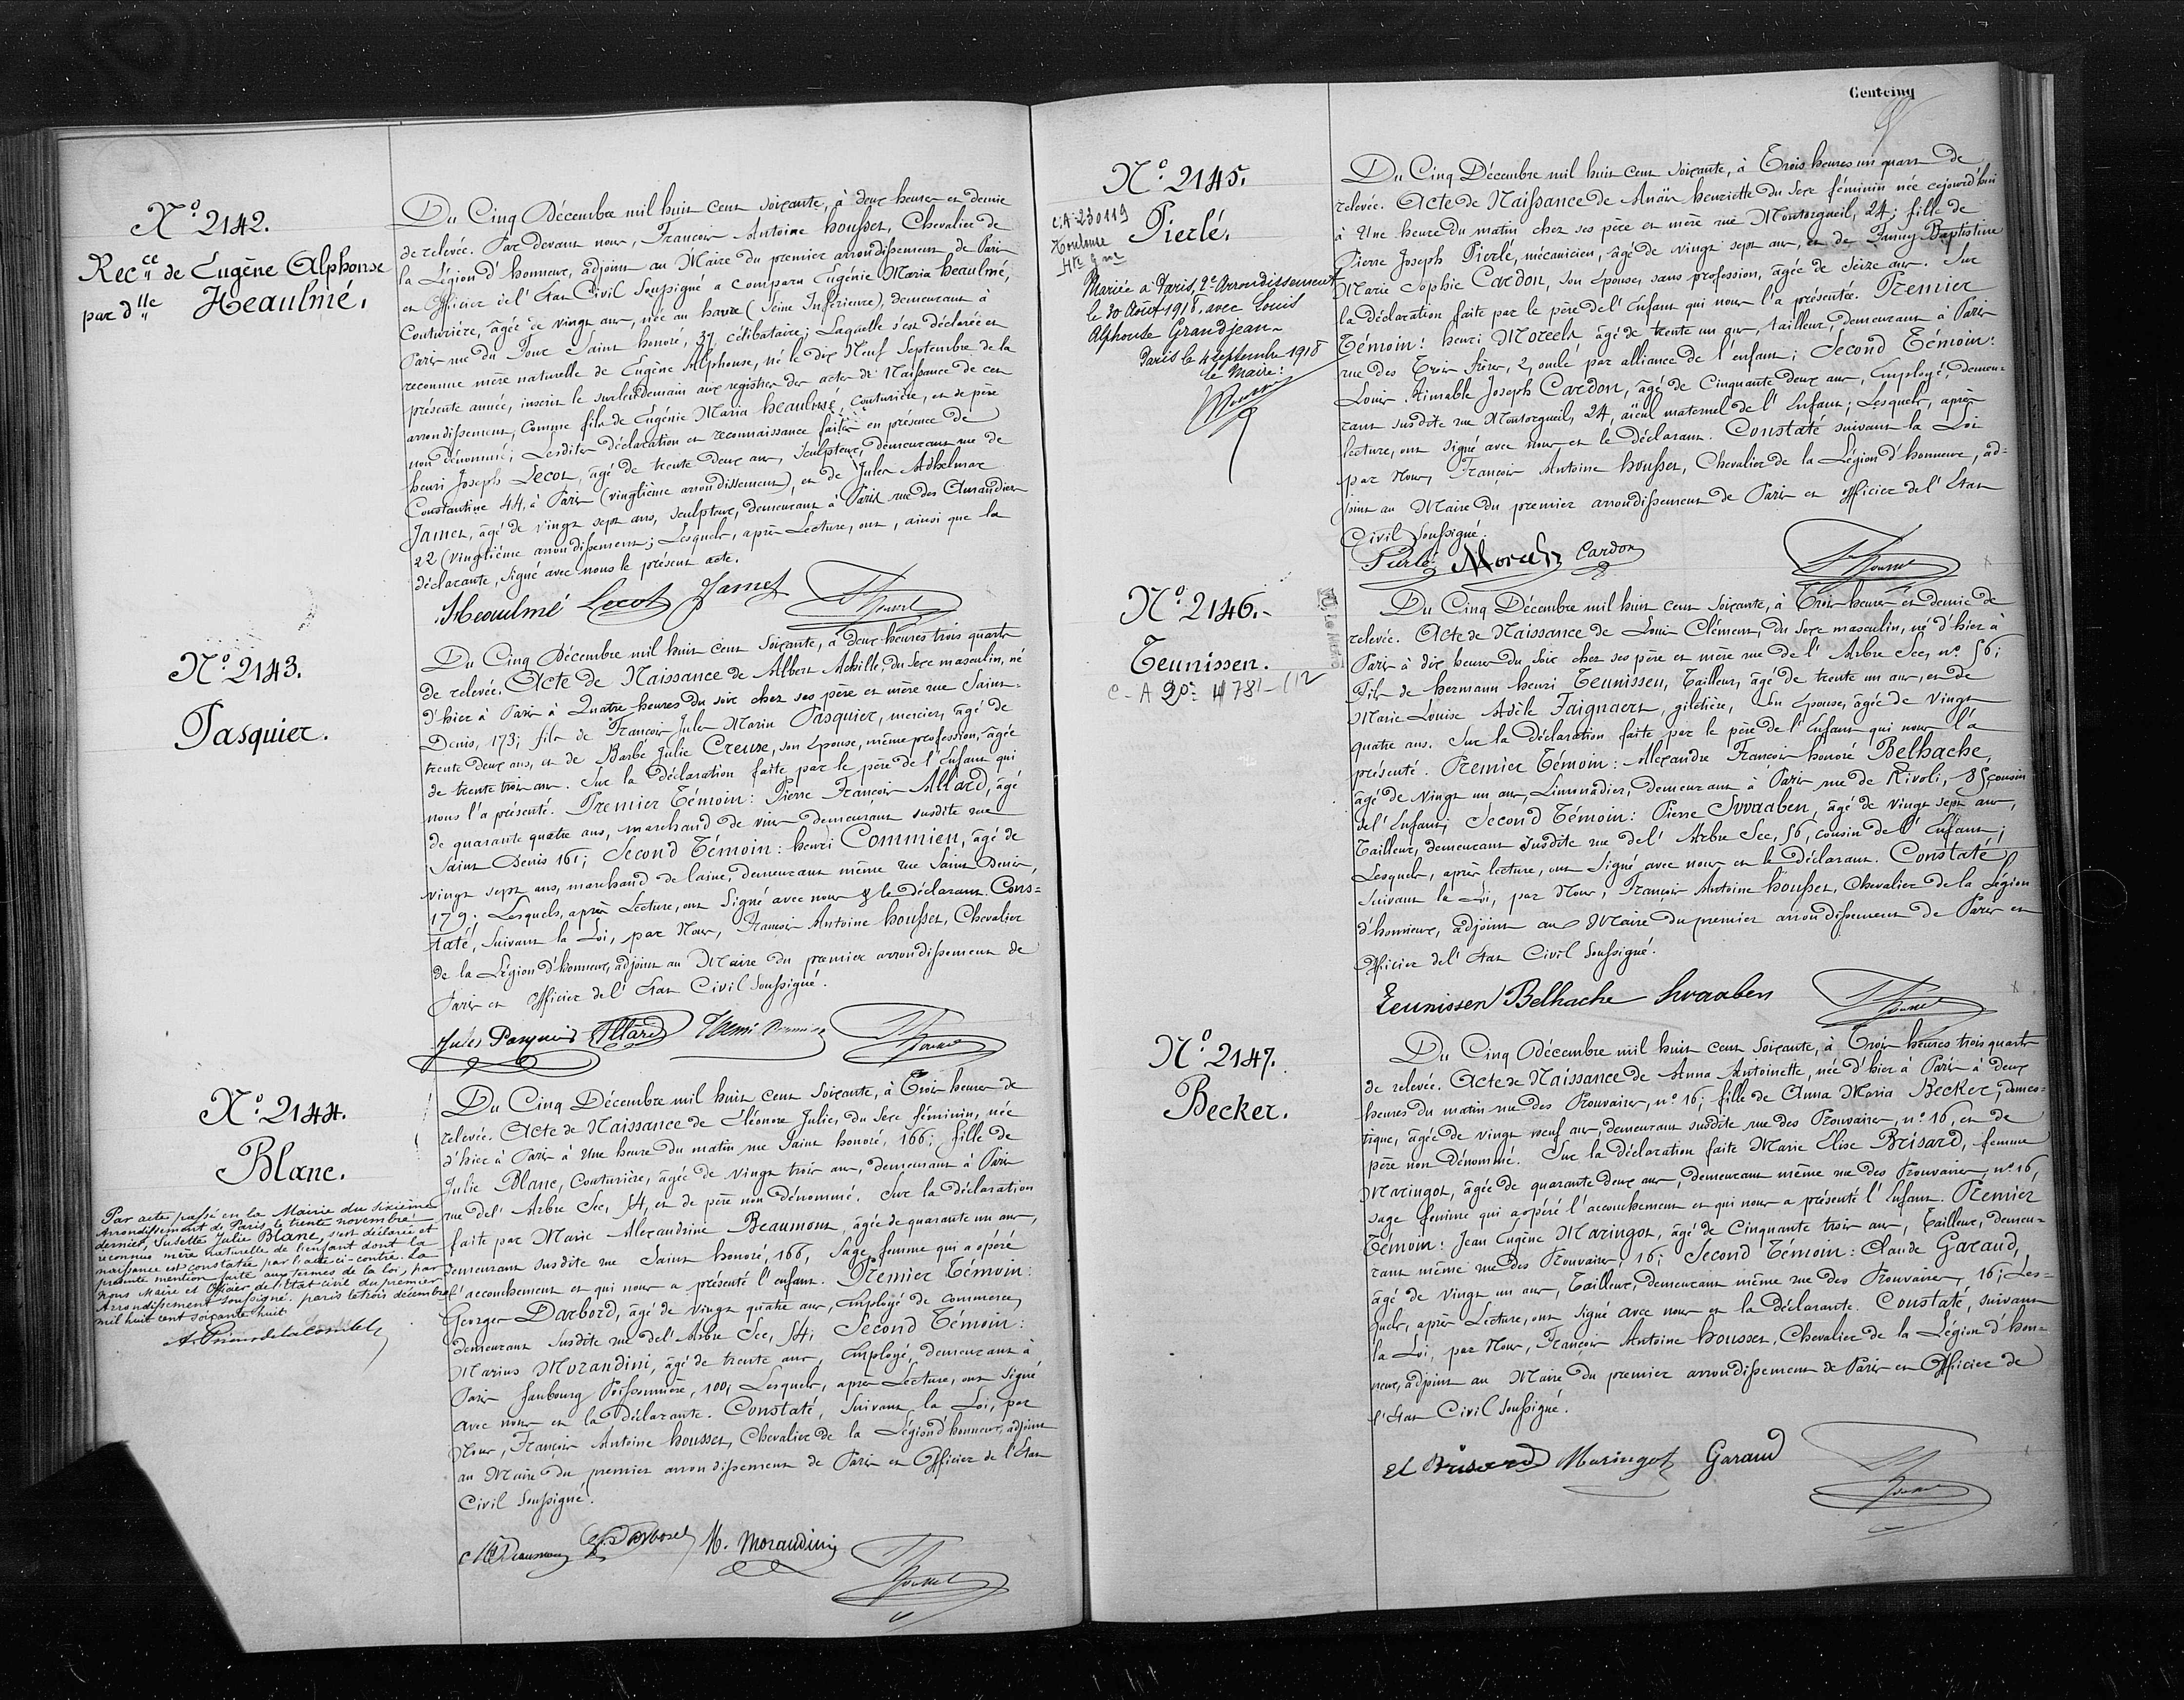 N.o 2142.
Rec.ce de Eugène Alphonse
par d.lle Heaulmé.
Du Cinq Décembre mil huit cent soixante, à deux heures et demie
de relevée. Par devant nous, François Antoine housset, Chevalier de
la Légion d'honneur, adjoint au Maire du premier arrondissement de Paris
et Officier de l'État Civil Soussigné a comparu Eugénie Maria heaulmé,
Couturière, âgée de vingt ans, née au havre (Seine Inférieure), demeurant à
Paris rue du Four Saint honoré, 37, célibataire; Laquelle s'est déclarée et
reconnue mère naturelle de Eugène Alphonse, né le dix Neuf Septembre de la
présente année, inscrit le surlendemain aux registres des actes de Naissance de cet
arrondissement, comme fils de Eugénie Maria heaulmé, couturière, et de père
non dénommé; Lesdites déclaration et reconnaissance faites en présence de
henri Joseph Lecot, âgé de trente deux ans, Sculpteur, demeurant rue de
Constantine 44, à Paris (vingtième arrondissement), et de Jules Adhelmar
Jamet, âgé de vingt sept ans, sculpteur, demeurant à Paris rue des Amandiers
22 (vingtième arrondissement; Lesquels, après Lecture, ont, ainsi que la
déclarante, signé avec nous le présent acte.
Heaulmé Lecot Jamet Housset
N.o 2143.
Pasquier.
Du Cinq Décembre mil huit cent soixante, à deux heures trois quarts
de relevée. Acte de Naissance de Albert Achille, du sexe masculin, né
d'hier à Paris à Quatre heures du soir chez ses père et mère rue Saint-
Denis, 173; fils de François Jules Marin Pasquier, mercier, âgé de
trente deux ans, et de Barbe Julie Creuse, son Epouse, même profession, âgée
de trente trois ans. Sur la déclaration faite par le père de l'Enfant qui
nous l'a présenté. Premier Témoin: Pierre François Allard, âgé
de quarante quatre ans, marchand de vin demeurant susdite rue
Saint Denis 161; Second Témoin: henri Commien, âgé de
vingt sept ans, marchand de laine, demeurant même rue Saint Denis,
179; Lesquels, après Lecture, ont Signé avec nous & le Déclarant. Cons=
taté, Suivant la Loi, par Nous, François Antoine housset, Chevalier
de la Légion d'honneur, adjoint au Maire du premier arrondissement de
Paris et Officier de l'État Civil Soussigné.
Jules Pasquier Allard Henri Housset
N.o 2144.
Blanc.
Par acte passé en la Mairie du sixième
Arrondissement de Paris, le trente novembre
dernier, Susette Julie Blanc, s'est déclarée et
reconnue mère naturelle de l'enfant dont la
naissance est constatée par l'acte ci-contre. La
présente mention faite aux termes de la loi, par
nous Maire et Officier de l'État civil du premier
Arrondissement soussigné. paris le trois décembre
mil huit cent soixante huit
Du Cinq Décembre mil huit cent Soixante, à Trois heures de
relevée. Acte de Naissance de Eléonore Julie, du Sexe féminin, née
d'hier à Paris à Une heure du matin rue Saint honoré, 166; fille de
Julie Blanc, Couturière, âgée de vingt trois ans, demeurant à Paris
rue de l'Arbre Sec, 54, et de père non dénommé. Sur la déclaration
faite par Marie Alexandrine Beaumont, âgée de quarante un ans,
demeurant susdite rue Saint honoré, 166, Sage femme qui a opéré
l'accouchement et qui nous a présenté l'enfant. Premier Témoin:
Georges Darbord, âgé de vingt quatre ans, Employé de commerce,
demeurant susdite rue de l'Arbre Sec, 54; Second Témoin:
Marius Morandini, âgé de trente ans, Employé, demeurant à
Paris faubourg Poissonnière, 100; Lesquels, après Lecture, ont signé
avec nous et la Déclarante. Constaté, Suivant la Loi, par
Nous, François Antoine housset, Chevalier de la Légion d'honneur, adjoint
au Maire du premier arrondissement de Paris et Officier de l'État
Civil Soussigné.
Beaumont G. Darbord M. Morandini Housset
Cent cinq
N.o 2145.
Pierlé.
C.A 230119
Toulouse
Hte Gne
Mariée à Paris, 2e Arrondissement
le 30 Août 1918, avec Louis
Alphonse Grandjean
Paris le 4 Septembre 1918
le Maire:
Du Cinq Décembre mil huit cent soixante, à Trois heures un quart de
relevée. Acte de Naissance de Anaïs henriette du Sexe féminin née cejourd'hui
à Une heure du matin chez ses père et mère rue Montorgueil, 24; fille de
Pierre Joseph Pierlé, mécanicien, âgé de vingt sept ans, et de Fanny Baptistine
Marie Sophie Cardon, son Epouse, sans profession, âgée de Seize ans. Sur
la Déclaration faite par le père de l'Enfant qui nous l'a présentée. Premier
Témoin: henri Morech, âgé de trente un ans, tailleur, demeurant à Paris
rue des Trois frères, 2, oncle par alliance de l'enfant; Second Témoin:
Louis Aimable Joseph Cardon, âgé de Cinquante deux ans, Employé, demeu-
rant susdite rue Montorgueil, 24, aïeul maternel de l'Enfant; Lesquels, après
lecture, ont signé avec nous et le déclarant. Constaté suivant la Loi
par Nous, François Antoine housset, Chevalier de la Légion d'honneur, ad=
joint au Maire du premier arrondissement de Paris et Officier de l'État
Civil Soussigné.
Pierlé Cardon Housset
N.o 2146.
Teunissen.
Du Cinq Décembre mil huit cent Soixante, à Trois heures et demie de
relevée. Acte de Naissance de Louis Clément, du Sexe masculin, né d'hier à
Paris à dix heures du Soir chez ses père et mère rue de l'Arbre Sec, n.o 56;
Fils de hermann henri Teunissen, Tailleur, âgé de trente un ans, et de
Marie Louise Adèle Faignaert, giletière, Son Epouse, âgée de Vingt
quatre ans. Sur la Déclaration faite par le père de l'Enfant qui nous l'a
présenté. Premier Témoin: Alexandre François honoré Belhache,
âgé de Vingt un ans, Limonadier, demeurant à Paris rue de Rivoli, 85, cousin
de l'Enfant; Second Témoin: Pierre Swaaben, âgé de vingt sept ans,
Tailleur, demeurant Susdite rue de l'Arbre Sec, 56, cousin de l'Enfant;
Lesquels, après lecture, ont Signé avec nous et le Déclarant. Constaté,
Suivant la Loi, par Nous, François Antoine housset, Chevalier de la Légion
d'honneur, adjoint au Maire du premier arrondissement de Paris et
Officier de l'État Civil Soussigné.
Teunissen Belhache Swaaben Housset
N.o 2147.
Becker.
Du Cinq Décembre mil huit cent Soixante, à Trois heures trois quarts
de relevée. Acte de Naissance de Anna Antoinette, née d'hier à Paris à deux
heures du matin rue des Prouvaires, n.o 16; fille de Anna Maria Becker, domes=
tique, âgée de vingt neuf ans, demeurant susdite rue des Prouvaires, n.o 16, et de
père non Dénommé. Sur la déclaration faite Marie Elise Brisard, femme
Maringot, âgée de quarante deux ans, demeurant même rue des Prouvaires, n.o 16,
sage femme qui a opéré l'accouchement et qui nous a présenté l'Enfant. Premier
Témoin: Jean Eugène Maringot, âgé de Cinquante trois ans, Tailleur, demeu-
rant même rue des Prouvaires, 16; Second Témoin: Claude Garaud,
âgé de Vingt un ans, Tailleur, demeurant même rue des Prouvaires, 16; Les=
quels, après Lecture, ont signé avec nous et la déclarante. Constaté, suivant
la Loi, par Nous, François Antoine housset, Chevalier de la Légion d'hon=
neur, adjoint au Maire du premier arrondissement de Paris et Officier de
l'État Civil Soussigné.
El Brisard Maringot Garaud Housset